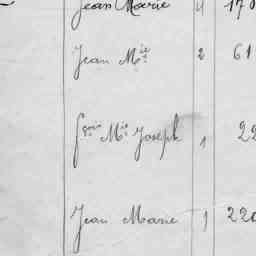 Jean Marie 4 178
Jean Mie 2 61
Fçois Mie Joseph 1 22
Jean Marie 1 220